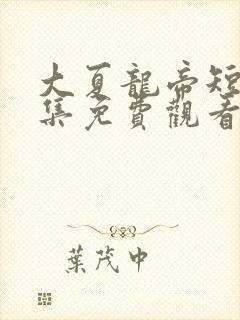 大夏龍帝短
集免費觀看
葉茂中